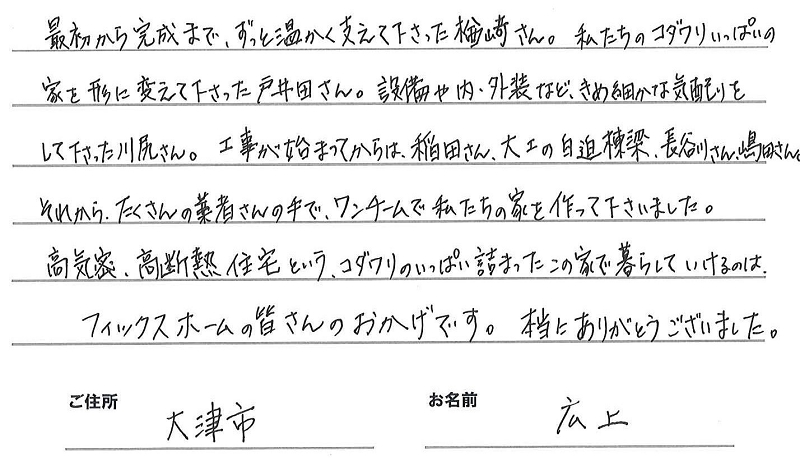 最初から完成まで、ずっと温かく支えて下さった楢﨑さん。私たちのコダワリいっぱいの
家を形に変えて下さった戸井田さん。設備や内・外装など、きめ細かな気配りを
して下さった川尻さん。工事が始まってからは、稲田さん、大工の白迫棟梁、長谷川さん、嶋田さん。
それから、たくさんの業者さんの手で、ワンチームで私たちの家を作って下さいました。
高気密、高断熱住宅という、コダワリのいっぱい詰まったこの家で暮らしていけるのは、
フィックスホームの皆さんのおかげです。本当にありがとうございました。
ご住所 大津市 お名前 広上